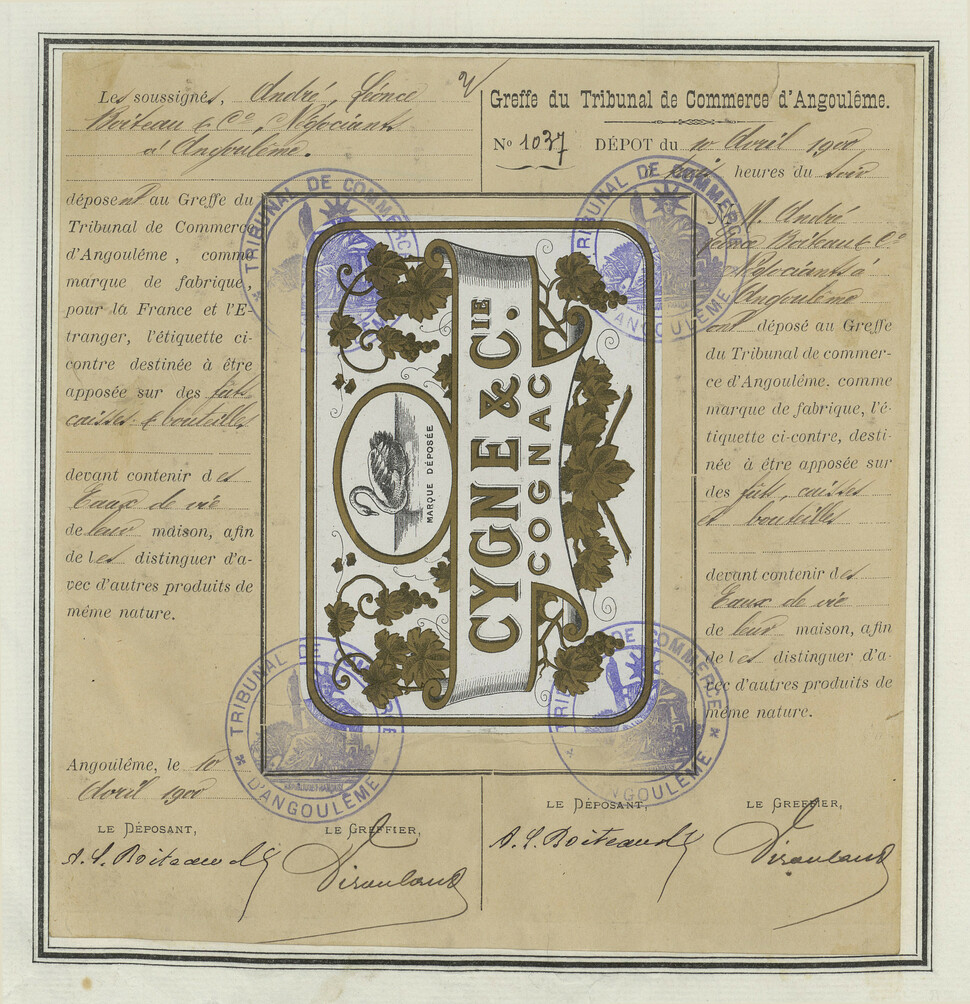 Les soussignés, André, Léonce
Boiteau & Cº, Négociants
à Angoulême.
déposent au Greffe du
Tribunal de Commerce
d'Angoulême, comme
marque de fabrique,
pour la France et l'E-
tranger, l'étiquette ci-
contre destinée à être
apposée sur des fûts
caisses & bouteilles
devant contenir des
Eaux de vie
de leur maison, afin
de les distinguer d'a-
vec d'autres produits de
même nature.
Angoulême, le 10
Avril 1900
LE DÉPOSANT,
LE GREFFIER,
A. L. Boiteau & Cº
Greffe du Tribunal de Commerce d'Angoulême.
Nº 1037 DÉPOT du 10 Avril 1900
heures du soir
M. André
Léonce Boiteau & Cº
Négociants à
Angoulême
ont déposé au Greffe
du Tribunal de commer-
ce d'Angoulême. comme
marque de fabrique, l'é-
tiquette ci-contre, desti-
née à être apposée sur
des fûts, caisses
et bouteilles
devant contenir des
Eaux de vie
de leur maison, afin
de les distinguer d'a-
vec d'autres produits de
même nature.
LE DÉPOSANT,
LE GREFFIER,
A. L. Boiteau & Cº
MARQUE DÉPOSÉE
CYGNE & CIE.
COGNAC
TRIBUNAL DE COMMERCE
D'ANGOULÊME
TRIBUNAL DE COMMERCE
D'ANGOULÊME
TRIBUNAL DE COMMERCE
D'ANGOULÊME
TRIBUNAL DE COMMERCE
D'ANGOULÊME